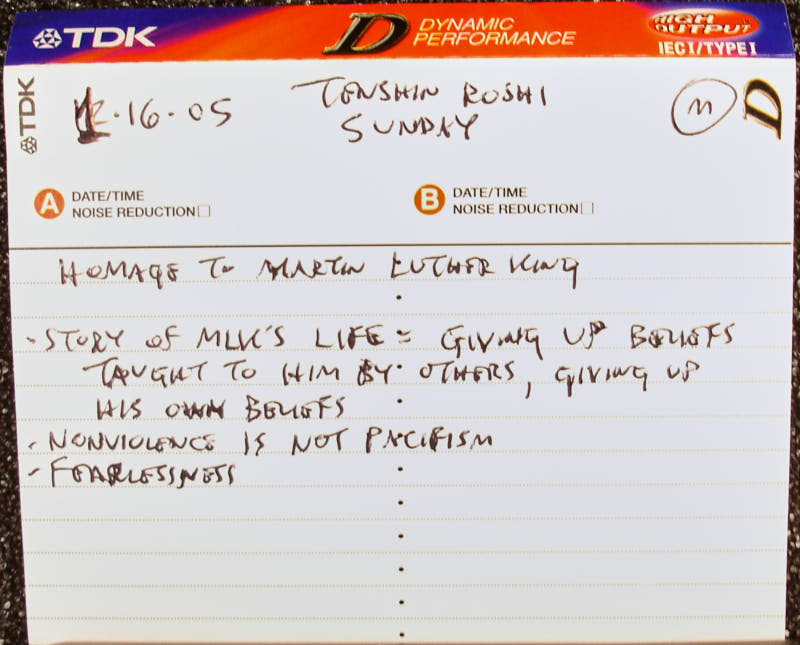 TDK
D DYNAMIC PERFORMANCE
HIGH OUTPUT
IEC I/TYPE I
TDK
·16·05
TENSHIN ROSHI
SUNDAY
M
D
A DATE/TIME
NOISE REDUCTION
B DATE/TIME
NOISE REDUCTION
HOMAGE TO MARTIN LUTHER KING
- STORY OF MLK'S LIFE = GIVING UP BELIEFS
TAUGHT TO HIM BY OTHERS, GIVING UP
HIS OWN BELIEFS
- NONVIOLENCE IS NOT PACIFISM
- FEARLESSNESS